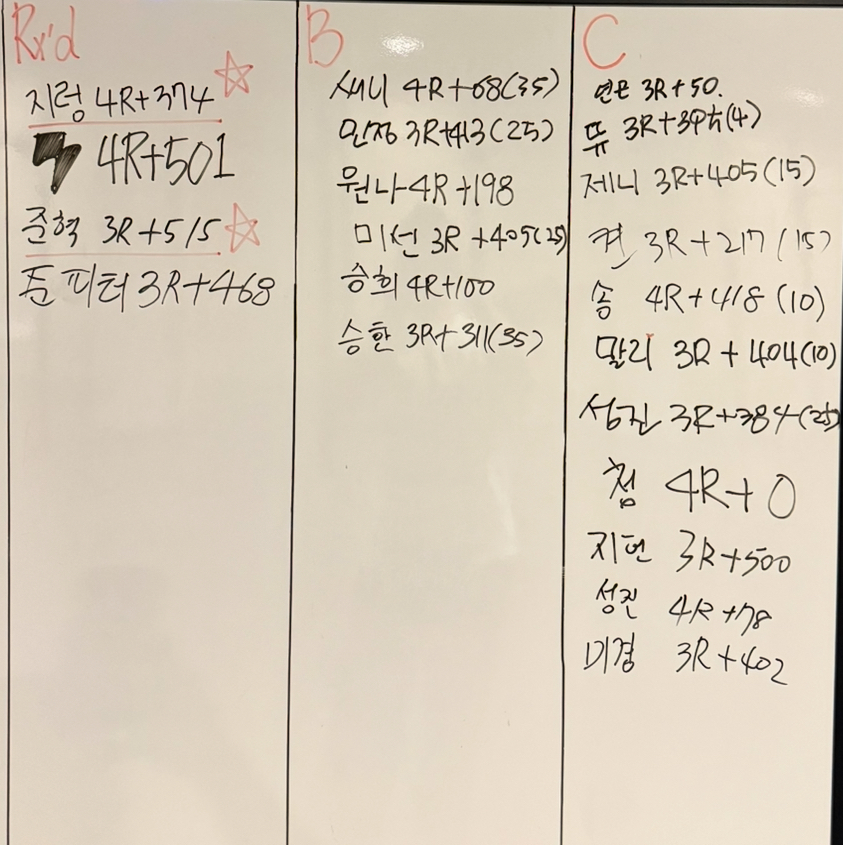 Rx'd
지렁 4R+374
4R+501
준혁 3R+515
톤 피터 3R+468
B
새니 4R+68(35)
민정 3R+413(25)
원나 4R+198
미선 3R+405(25)
승희 4R+100
승환 3R+311(35)
C
3R+50.
쀼 3R+395(4)
제니 3R+405(15)
켠 3R+217(15)
송 4R+418(10)
말리 3R+404(10)
성진 3R+384(25)
첨 4R+0
지연 3R+500
성진 4R+78
미경 3R+402